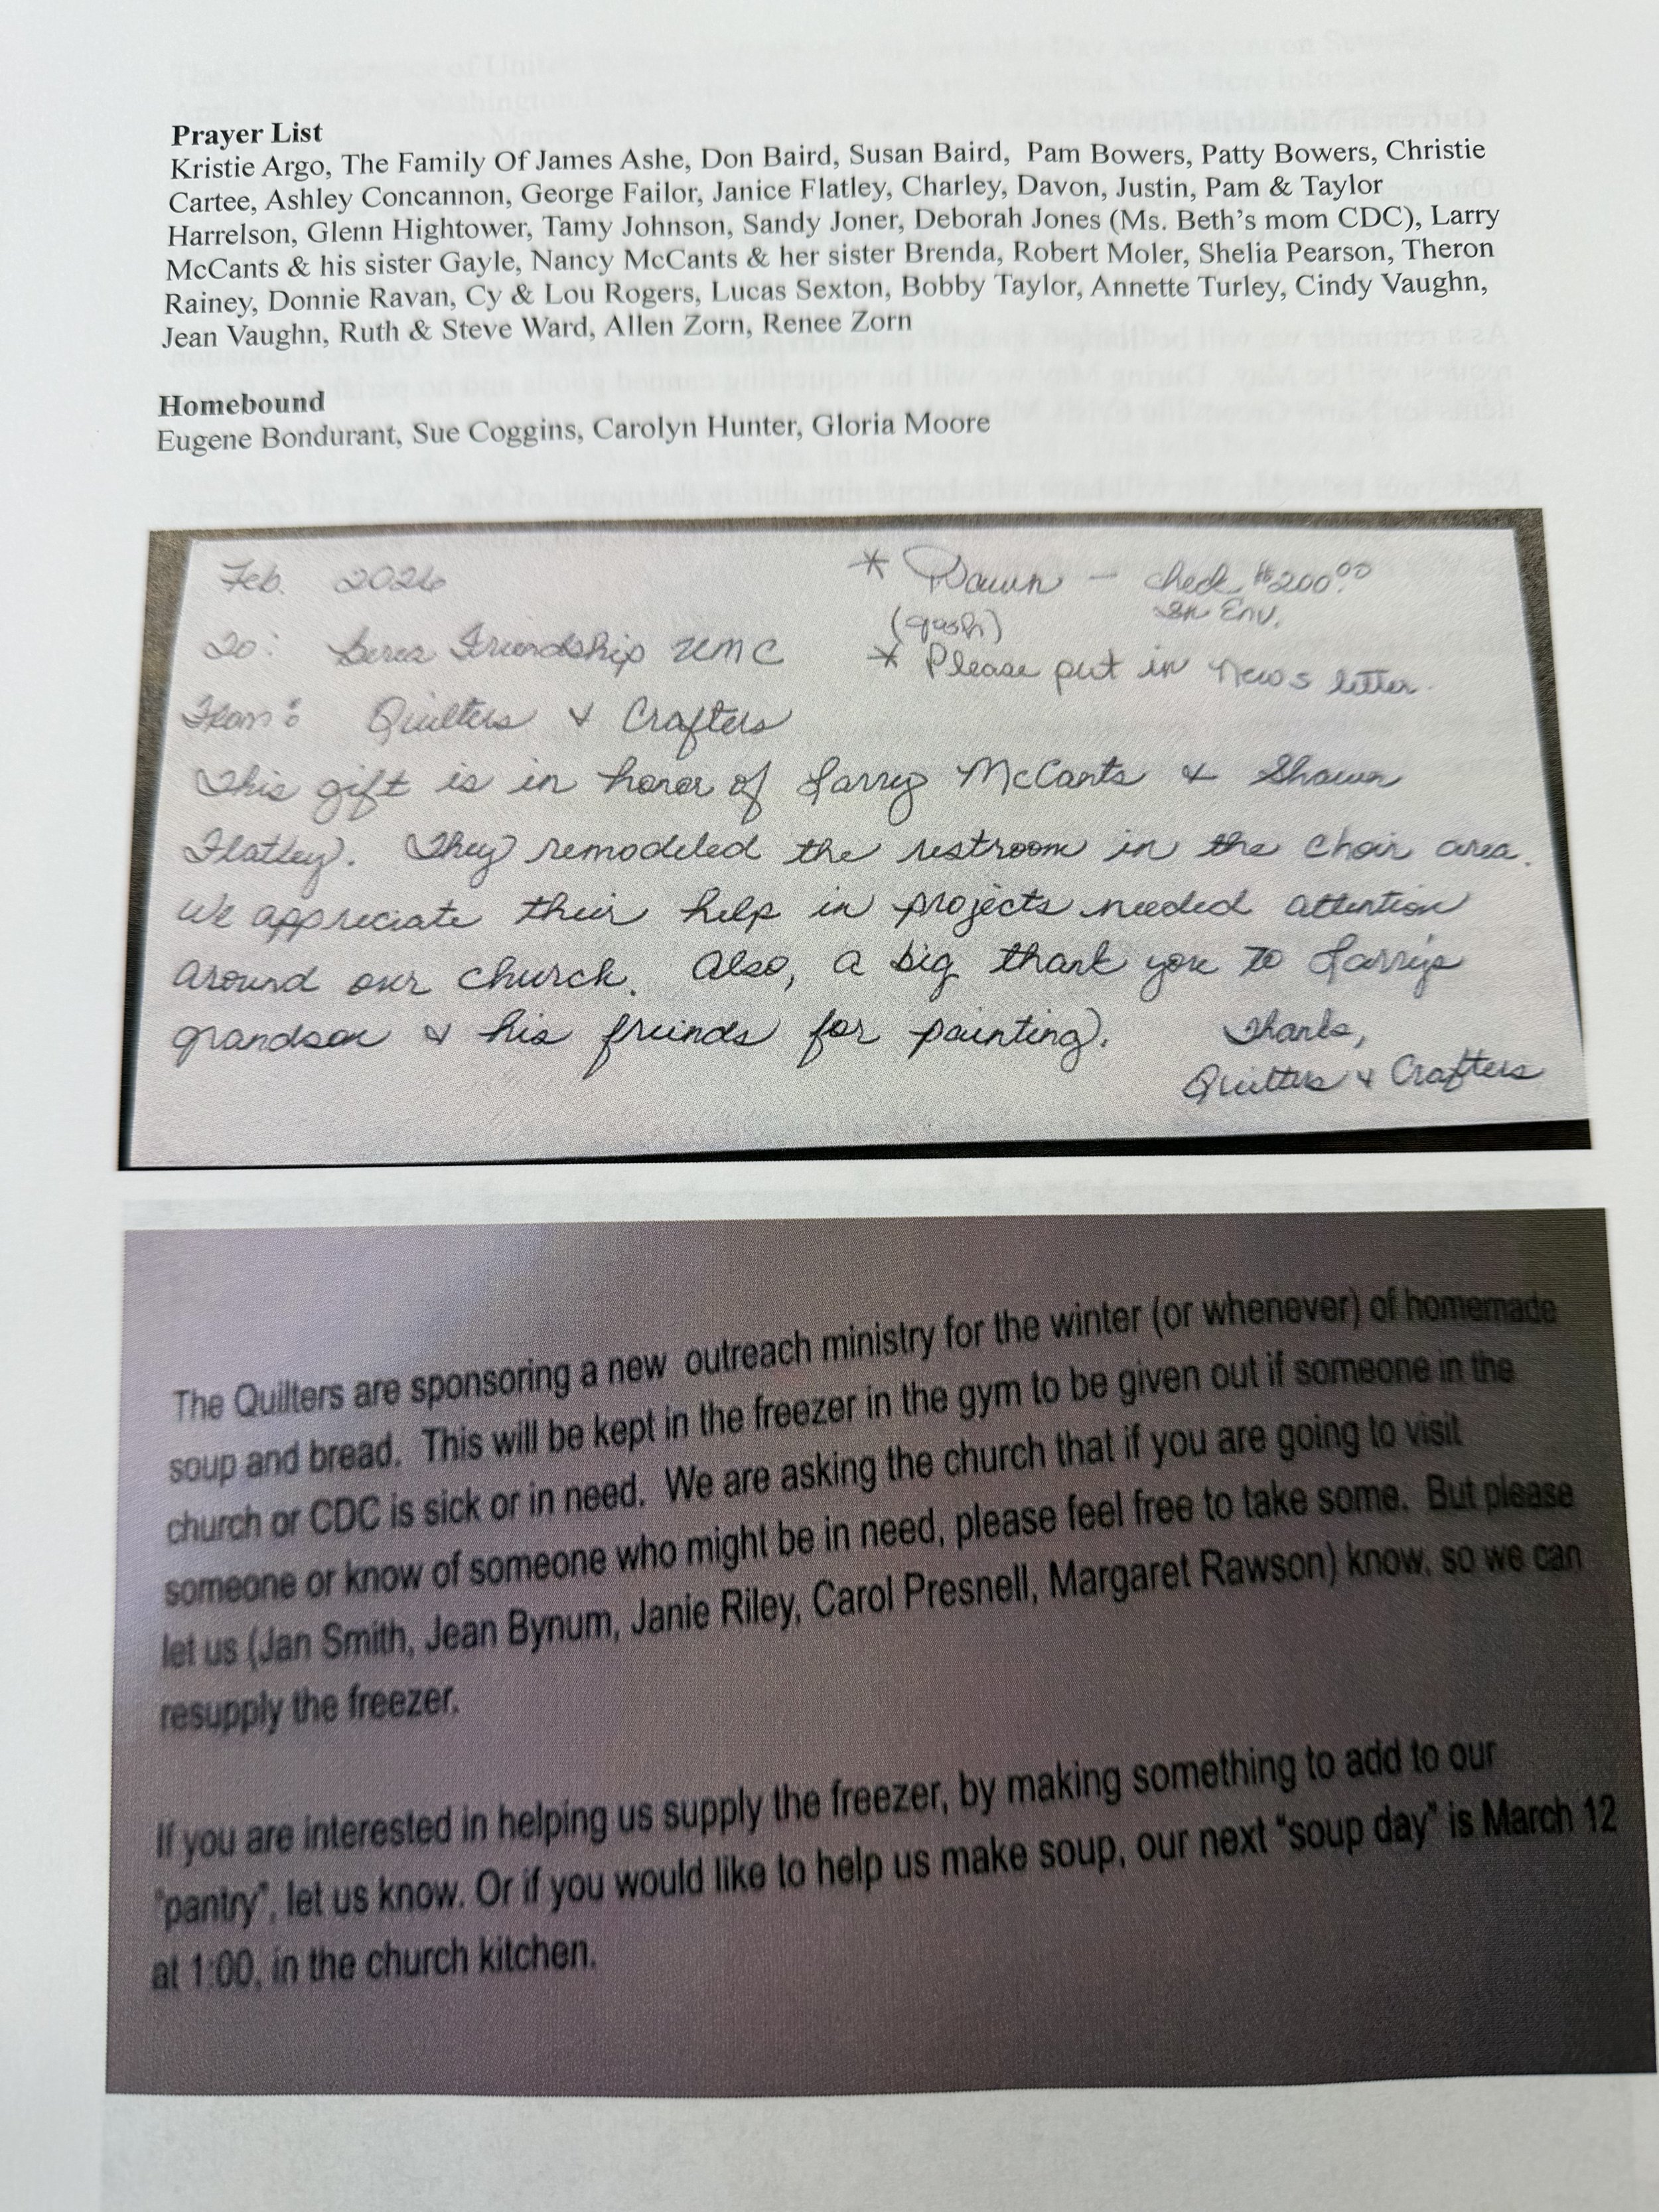 Prayer List
Kristie Argo, The Family Of James Ashe, Don Baird, Susan Baird, Pam Bowers, Patty Bowers, Christie
Cartee, Ashley Concannon, George Failor, Janice Flatley, Charley, Davon, Justin, Pam & Taylor
Harrelson, Glenn Hightower, Tamy Johnson, Sandy Joner, Deborah Jones (Ms. Beth's mom CDC), Larry
McCants & his sister Gayle, Nancy McCants & her sister Brenda, Robert Moler, Shelia Pearson, Theron
Rainey, Donnie Ravan, Cy & Lou Rogers, Lucas Sexton, Bobby Taylor, Annette Turley, Cindy Vaughn,
Jean Vaughn, Ruth & Steve Ward, Allen Zorn, Renee Zorn
Homebound
Eugene Bondurant, Sue Coggins, Carolyn Hunter, Gloria Moore
Feb. 2026
* Dawn - check $200.00
In Env.
To: Friendship UMC
* Please put in News letter.
From: Quilters & Crafters
This gift is in honor of Larry McCants & Shawn
Flatley. They remodeled the restroom in the choir area.
We appreciate their help in projects needed attention
around our church. Also, a big thank you to Larry's
grandson & his freinds for painting.
Thanks,
Quilters & Crafters
The Quilters are sponsoring a new outreach ministry for the winter (or whenever) of homemade
soup and bread. This will be kept in the freezer in the gym to be given out if someone in the
church or CDC is sick or in need. We are asking the church that if you are going to visit
someone or know of someone who might be in need, please feel free to take some. But please
let us (Jan Smith, Jean Bynum, Janie Riley, Carol Presnell, Margaret Rawson) know, so we can
resupply the freezer.
If you are interested in helping us supply the freezer, by making something to add to our
"pantry", let us know. Or if you would like to help us make soup, our next "soup day" is March 12
at 1:00, in the church kitchen.